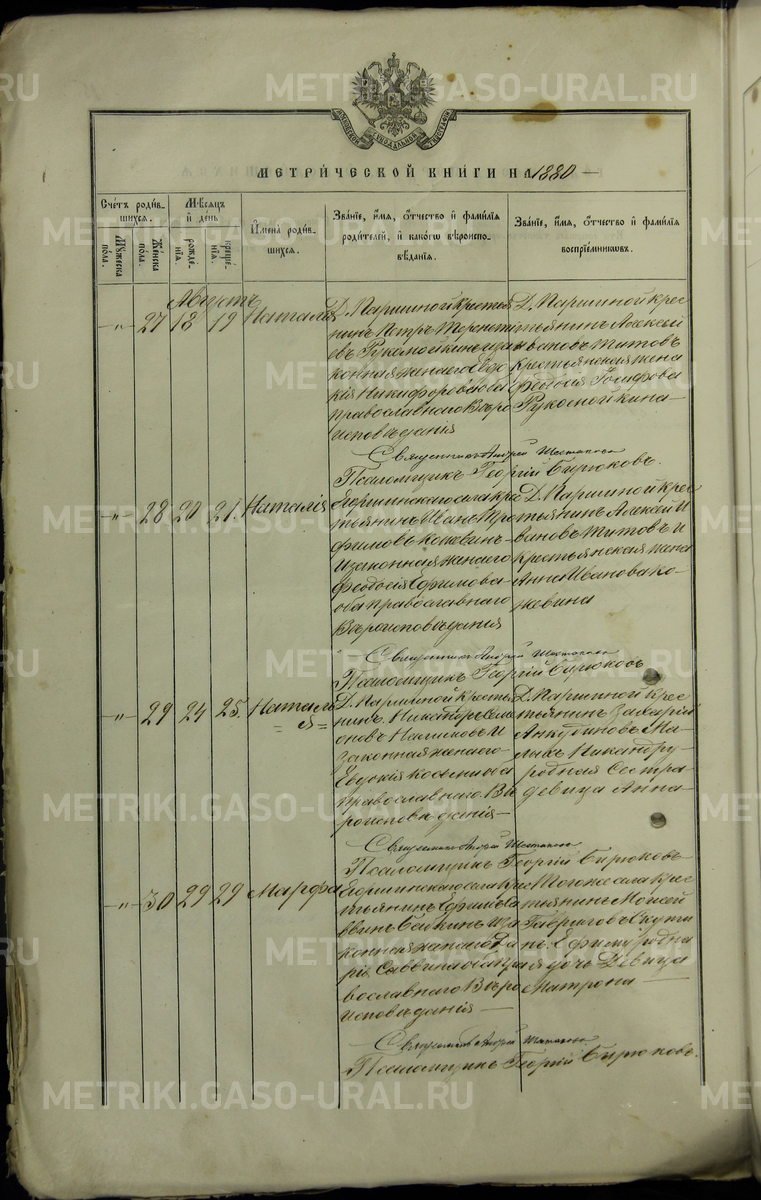 МЕТРИЧЕСКОЙ КНИГИ НА 1880
Счетъ родив-
шихся.
Мужеска
пола.
Женска
пола.
Мѣсяцъ
и день
рожде-
нїя.
креще-
нїя.
Имена родив-
шихся.
Званїе, имя, отчество и фамилїя
родителей, и какогѡ вѣроиспо-
вѣданїя.
Званїе, имя, отчество и фамилїя
воспрїемниковъ.
Августъ
-"- 27 18 19 Наталія
Д. Паршиной Кресть
нинъ Петръ Терентi
евъ Рукомойкинъ и за
конная жена его Евдо
кія Никифорова оба
православнаго Вѣро
исповѣданія
Д. Паршиной Крес
тьянинъ Алексѣй
Ивановъ Титовъ
крестьянская жена
Феодосія
Рукомойкина
Священникъ Андрей Шестаковъ
Псаломщикъ Георгій Бирюковъ.
-"- 28 20 21. Наталія
Егоршинскаго села крес
тьянинъ Иванъ Тро
фимовъ Кожевинъ
и законная жена его
Феодосія Ефимова
оба православнаго
Вѣроисповѣданія
Д. Паршиной крес
тьянинъ Алексѣй И
вановъ Титовъ и
крестьянская жена
Анна Иванова Ко-
жевина
Священникъ Андрей Шестаковъ
Псаломщикъ Георгій Бирюковъ
-"- 29 24 25. Наталі
я
Д. Паршиной Крестья
нинъ Никандръ Сем
еновъ и
законная жена его
Евдокія Косьмина
православнаго Вѣ
роисповѣданія
Д. Паршиной Крес
тьянинъ Захарій
Анкудиновъ Ма-
лыхъ Никандру
родная Сестра
девица Анна
Священникъ Андрей Шестаковъ
Псаломщикъ Георгій Бирюковъ
-"- 30 29 29 Марфа
Егоршинскаго села Крес
тьянинъ Ефимъ Са
ввинъ и за
конная жена его Да
рія Саввина оба пра
вославнаго Вѣро
исповѣданія
Того же села Крес
тьянинъ Моисей
Гавриловъ Скути
нъ. Ефиму родна
я дочь Девица
Матрона
Священникъ Андрей Шестаковъ
Псаломщикъ Георгій Бирюковъ.
METRIKI.GASO-URAL.RU